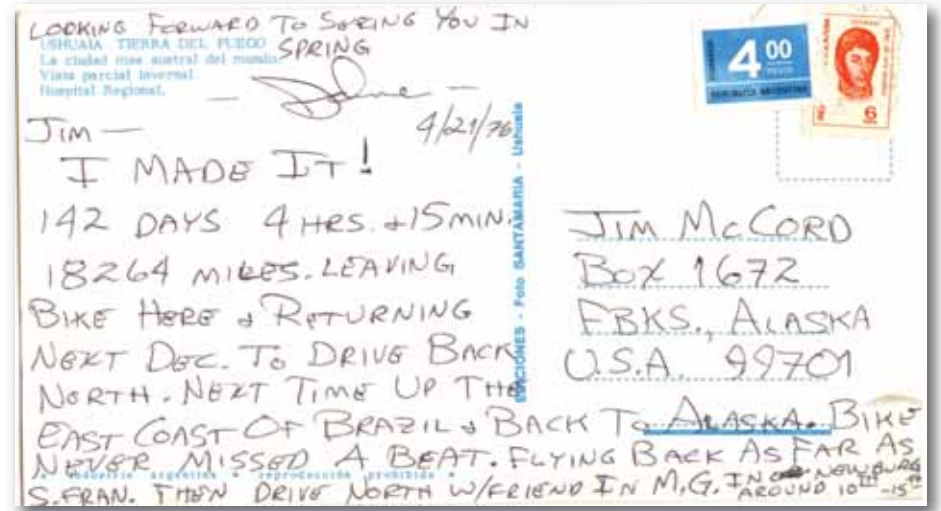 LOOKING FORWARD TO SEEING YOU IN
SPRING
USHUAIA TIERRA DEL FUEGO
La ciudad mas austral del mundo
Vista parcial invernal.
Hospital Regional.
4/21/76
JIM —
I MADE IT!
142 DAYS 4 HRS. + 15 MIN.
18264 MILES. LEAVING
BIKE HERE & RETURNING
NEXT DEC. TO DRIVE BACK
NORTH. NEXT TIME UP THE
EAST COAST OF BRAZIL & BACK TO ALASKA. BIKE
NEVER MISSED A BEAT. FLYING BACK AS FAR AS
S.FRAN. THEN DRIVE NORTH W/FRIEND IN M.G. IN NEWBURG
AROUND 10TH -15TH
industria argentina • reproducción prohibida
EDICIONES - Foto SANTAMARIA - Ushuaia
4 00
PESOS
REPUBLICA ARGENTINA
6
JIM McCORD
BOX 1672
FBKS., ALASKA
U.S.A. 99701